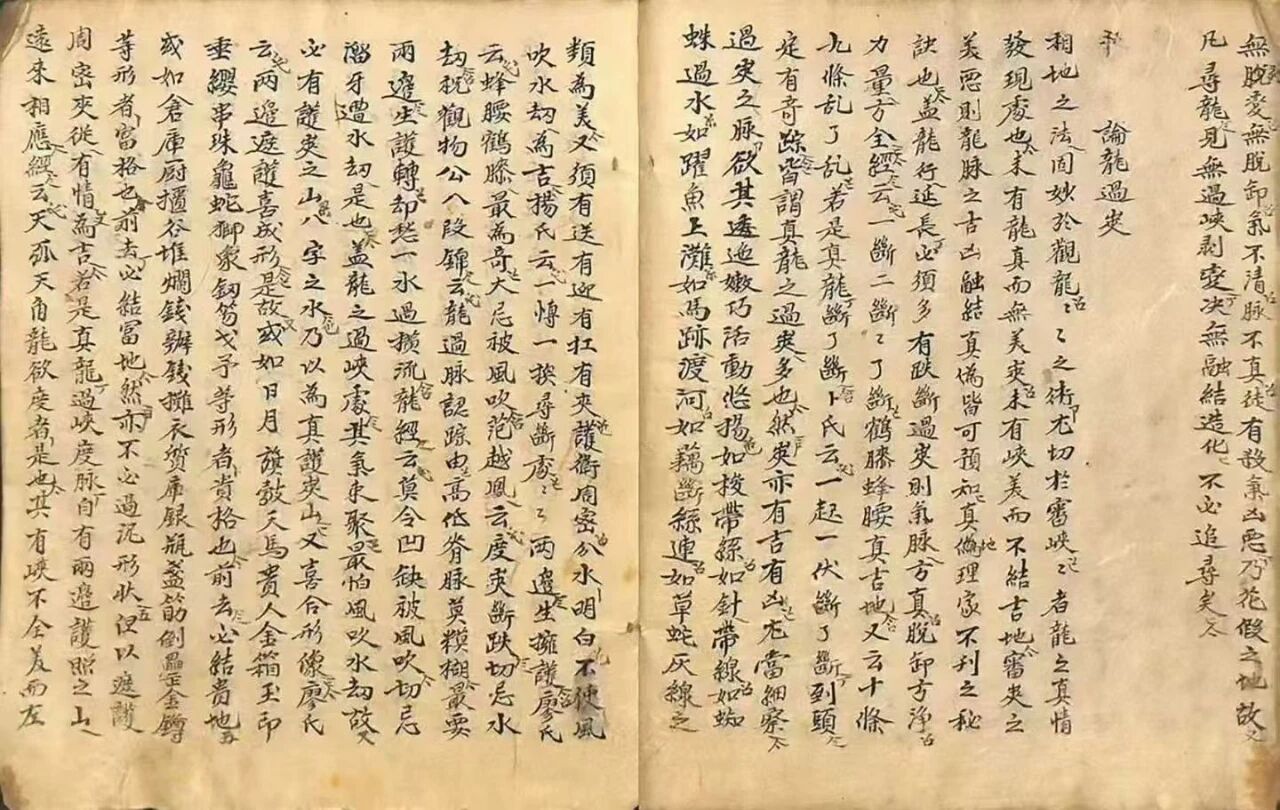 無脫愛無脫卸氣不清脉不真徒有殺氣凶惡乃花假之地故
凡尋龍見無過峽剥變决無融結造化不必追尋矣
論龍過夾
相地之法固妙於觀龍〻之術尤切於審峽〻者龍之真情
發現處也未有龍真而無美夾未有峽美而不結吉地審夾之
美惡則龍脉之吉凶融結真偽皆可預知真偽理家不刋之秘
訣也盖龍行延長必須多有跌斷過夾則氣脉方真脫卸方净
力量方全經云一斷二斷〻了斷鶴膝蜂腰真吉地又云十條
九條乱了乱若是真龍斷了斷卜氏云一起一伏斷了斷到頭
定有奇踪皆謂真龍之過夾多也然夾亦有吉有凶尤當細察
過夾之脉欲其透迤嫩巧活動悠揚如梭帶絲如針帶線如蜘
蛛過水如躍魚上灘如馬跡渡河如藕斷絲連如草蛇灰線之
類為美又須有送有迎有扛有夾護衛周密分水明白不使風
吹水刼為吉揚氏云一博一換尋斷處〻兩邊生擁護廖氏
云蜂腰鶴膝最為奇大忌被風吹范越鳯云度夾斷跌切忌水
刼税觀物公八段錦云龍過脉認踪由高低脊脉莫糢糊最要
兩邊生護轉却愁一水過攔流龍經云莫令凹缺被風吹切忌
溜牙遭水刼是也盖龍之過峽處其氣束聚最怕風吹水刼故
必有護夾之山八字之水乃以為真護夾山又喜合形像廖氏
云兩邉遮護喜成形是故或如日月旗鼓天馬貴人金箱玉印
垂纓串珠龜蛇獅象劔笏戈予等形者貴格也前去必結貴地
或如倉庫厨櫃谷堆爛錢辦錢攤衣質庫銀瓶盞筯倒罍金鐏
等形者富格也前去必結富地然亦不必過泥形状但以遮護
周密夾從有情為吉若是真龍過峽度脉自有兩邉護照之山
遠來相應經云天孤天角龍欲度者是也其有峽不全美而左